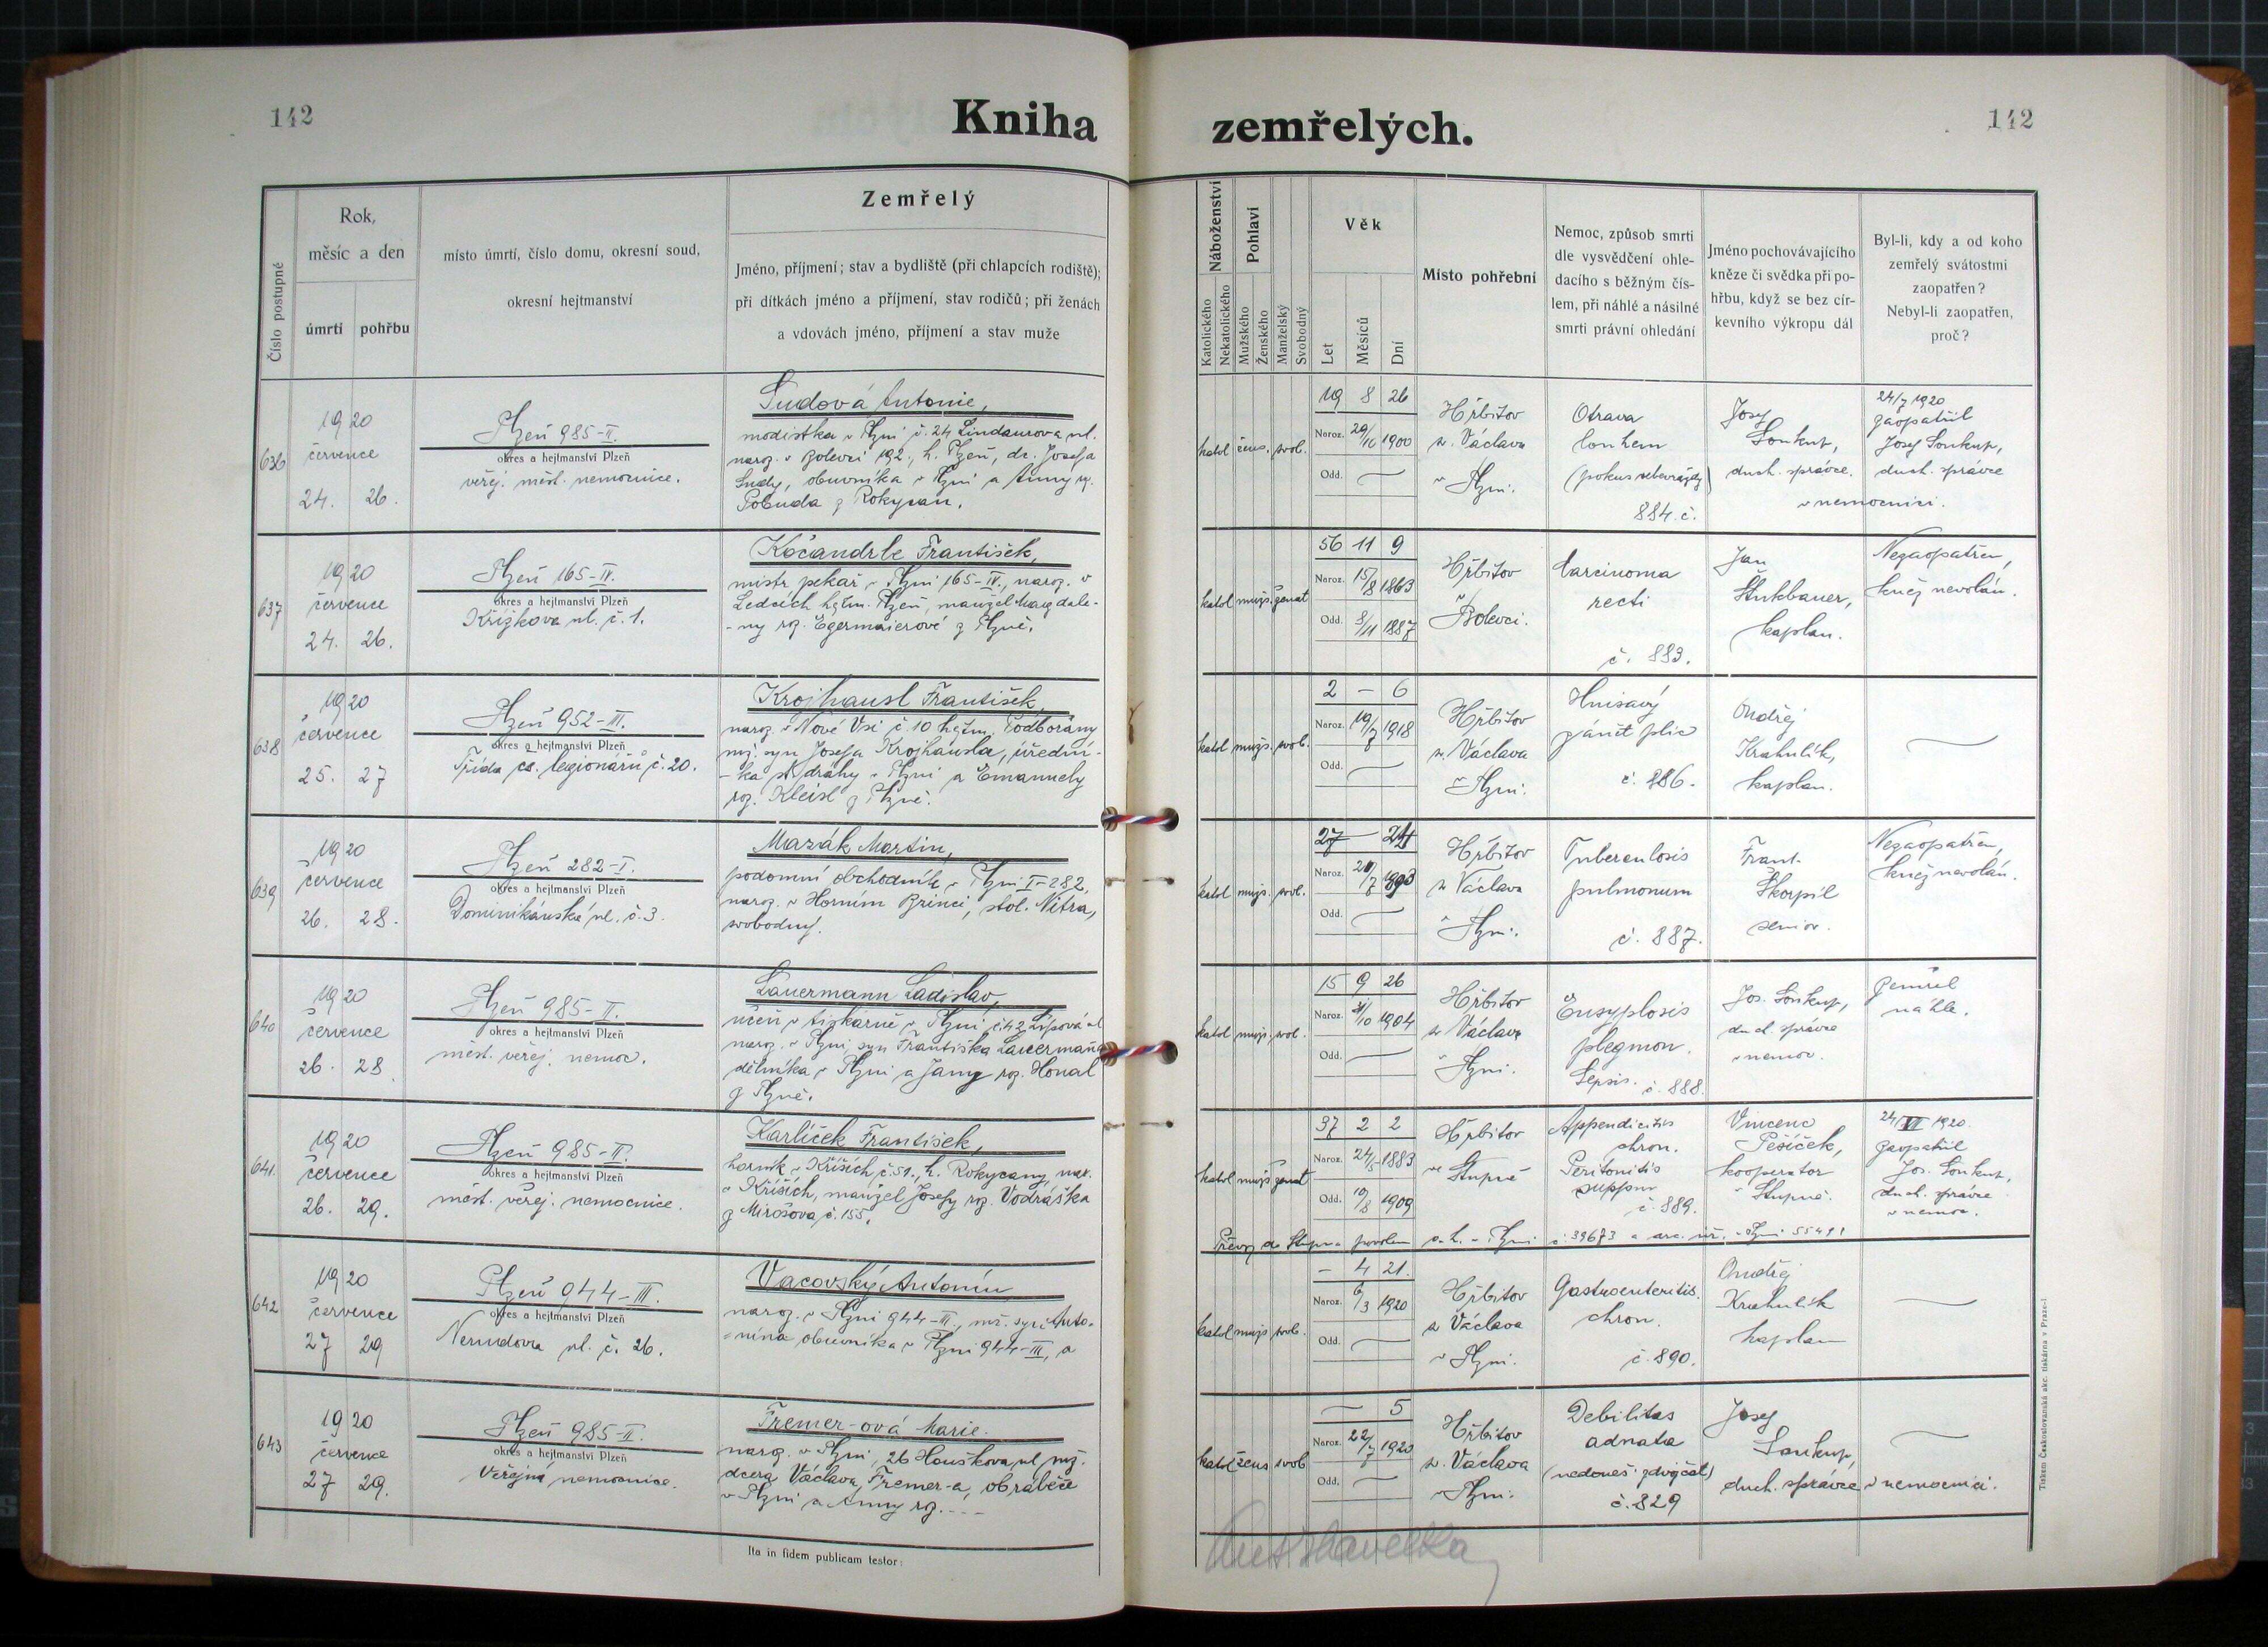 142
Kniha zemřelých.
142
Číslo postupné
Rok,
měsíc a den
úmrtí
pohřbu
místo úmrtí, číslo domu, okresní soud,
okresní hejtmanství
Zemřelý
Jméno, příjmení; stav a bydliště (při chlapcích rodiště);
při dítkách jméno a příjmení, stav rodičů; při ženách
a vdovách jméno, příjmení a stav muže
Náboženství
Katolického
Nekatolického
Pohlaví
Mužského
Ženského
Manželský
Svobodný
Věk
Let
Měsíců
Dní
Místo pohřební
Nemoc, způsob smrti
dle vysvědčení ohle-
dacího s běžným čís-
lem, při náhlé a násilné
smrti právní ohledání
Jméno pochovávajícího
kněze či svědka při po-
hřbu, když se bez cír-
kevního výkropu dál
Byl-li, kdy a od koho
zemřelý svátostmi
zaopatřen?
Nebyl-li zaopatřen,
proč?
636
1920
července
24. 26.
Plzeň 985-II.
okres a hejtmanství Plzeň
veřej. měst. nemocnice.
Sudová Antonie,
modistka v Plzni č. 24 Lindaurova ul.
naroz. v Bolevci 192., h. Plzeň, dc. Josefa
Sudy, obuvníka v Plzni a Anny r.
Pobuda z Rokycan.
katol žens. svob.
19 8 26
Naroz. 29/10 1900
Odd. —
Hřbitov
sv. Václava
v Plzni.
Otrava
louhem
(pokus sebevraždy)
884. č.
Josef
Soukup,
duch. správce.
v nemocnici.
24/7 1920
zaopatřil
Josef Soukup,
duch. správce
637
1920
července
24. 26.
Plzeň 165-IV.
okres a hejtmanství Plzeň
Křižkova ul. č. 1.
Kočandrle František,
mistr pekař v Plzni 165-IV., naroz. v
Ledcích hejtm. Plzeň, manžel Magdale-
-ny roz. Egermaierové z Plzně.
katol mužs. ženat
56 11 9
Naroz. 15/8 1863
Odd. 8/11 1887
Hřbitov
v Bolevci.
Carcinoma
recti
č. 883.
Jan
Stukbauer,
kaplan.
Nezaopatřen,
kněz nevolán.
638
1920
července
25. 27
Plzeň 952-III.
okres a hejtmanství Plzeň
Třída čs. legionářů č. 20.
Krojhausl František,
naroz. v Nové Vsi č. 10 hejtm. Podbořany
mž syn Josefa Krojhausla, úřední-
-ka st. dráhy v Plzni a Emanuely
roz. Kleisl z Plzně.
katol mužs. svob.
2 — 6
Naroz. 19/7 1918
Odd. —
Hřbitov
sv. Václava
v Plzni.
Hnisavý
zánět plic
č. 886.
Ondřej
Krahulík,
kaplan.
—
639
1920
července
26. 28.
Plzeň 282-I.
okres a hejtmanství Plzeň
Dominikánská ul. č. 3.
Mazák Martin,
podomní obchodník v Plzni I-282,
naroz. v Horním Brinci, stol. Nitra,
svobodný.
katol mužs. svob.
27 —
Naroz.
Odd. —
Hřbitov
sv Václava
v Plzni.
Tuberculosis
pulmonum
č. 887.
Frant.
Škorpil
senior.
Nezaopatřen,
kněz nevolán.
640
1920
července
26. 28.
Plzeň 985-II.
okres a hejtmanství Plzeň
měst. veřej. nemoc.
Lauermann Ladislav,
učeň v tiskárně v Plzni č. 42 Lipová ul
naroz. v Plzni syn Františka Lauermana
dělníka v Plzni a Jany roz. Honal
z Plzně.
katol mužs. svob.
15 9 26
Naroz. 1904
Odd. —
Hřbitov
sv Václava
v Plzni.
plegmon.
Sepsis. č. 888.
Jos. Soukup,
duch. správce
v nemoc.
Zemřel
náhle.
641.
1920
července
26. 29.
Plzeň 985-II.
okres a hejtmanství Plzeň
měst. veřej. nemocnice.
Karlíček František,
horník v Křiších, č. 51., h. Rokycany, nar.
v Křiších, manžel Josefy roz. Vodráška
z Mirošova č. 155.
katol mužs ženat
37 2 2
Naroz. 24/5 1883
Odd. 10/8 1909
Hřbitov
ve Stupně
Appendicitis
chron.
Peritonitis
suppur
č. 889.
Vincenc
Pešíček,
kooperator
v Stupně.
24/VII 1920.
zaopatřil
Jos. Soukup,
duch. správce
v nemoc.
Převoz do Stupna povolen o. h. v Plzni č. 39673 a
642
1920
července
27 29
Plzeň 944-III.
okres a hejtmanství Plzeň
Nerudova ul. č. 26.
Vacovský Antonín
naroz. v Plzni 944-III., mž. syn Anto-
=nína obuvníka v Plzni 944-III, a
katol mužs svob.
— 4 21.
Naroz. 6/3 1920
Odd. —
Hřbitov
sv Václava
v Plzni.
Gastroenteritis.
chron.
č. 890.
Ondřej
Krahulík
kaplan
—
643
1920
července
27 29.
Plzeň 985-II.
okres a hejtmanství Plzeň
Veřejná nemocnice.
Fremer-ová Marie.
naroz. v Plzni, 26 Houškova ul mž.
dcera Václava Fremer-a, obráběče
v Plzni a Anny roz. ----
katol žens svob
— 5
Naroz. 22/7 1920
Odd. —
Hřbitov
sv. Václava
v Plzni.
Debilitas
adnata
(nedonoš. z dvojčat)
č. 829
Josef
Soukup,
duch. správce v nemocnici.
—
Ita in fidem publicam testor:
Ant Havelka
Tiskem Českoslovanské akc. tiskárny v Praze-I